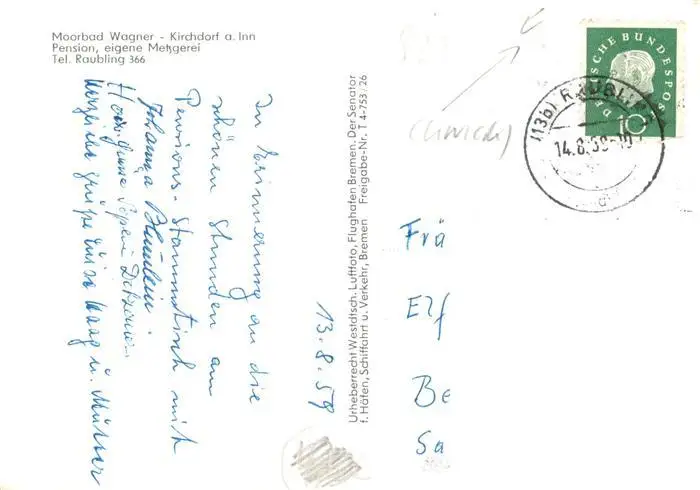 Moorbad Wagner - Kirchdorf a. Inn
Pension, eigene Metzgerei
Tel. Raubling 366
13.8.59
In Erinnerung an die
schönen Stunden am
Pensions-Stammtisch mit
Johanna
Herzliche Grüße Luise Haag u. Mutter
Urheberrecht Westdtsch. Luftfoto, Flughafen Bremen. Der Senator
f. Häfen, Schiffahrt u. Verkehr, Bremen Freigabe-Nr. T 4-753/26
DEUTSCHE BUNDESPOST
10
(13b) RAUBLING
14.8.59-19
Frä
Elf
Be
Sa